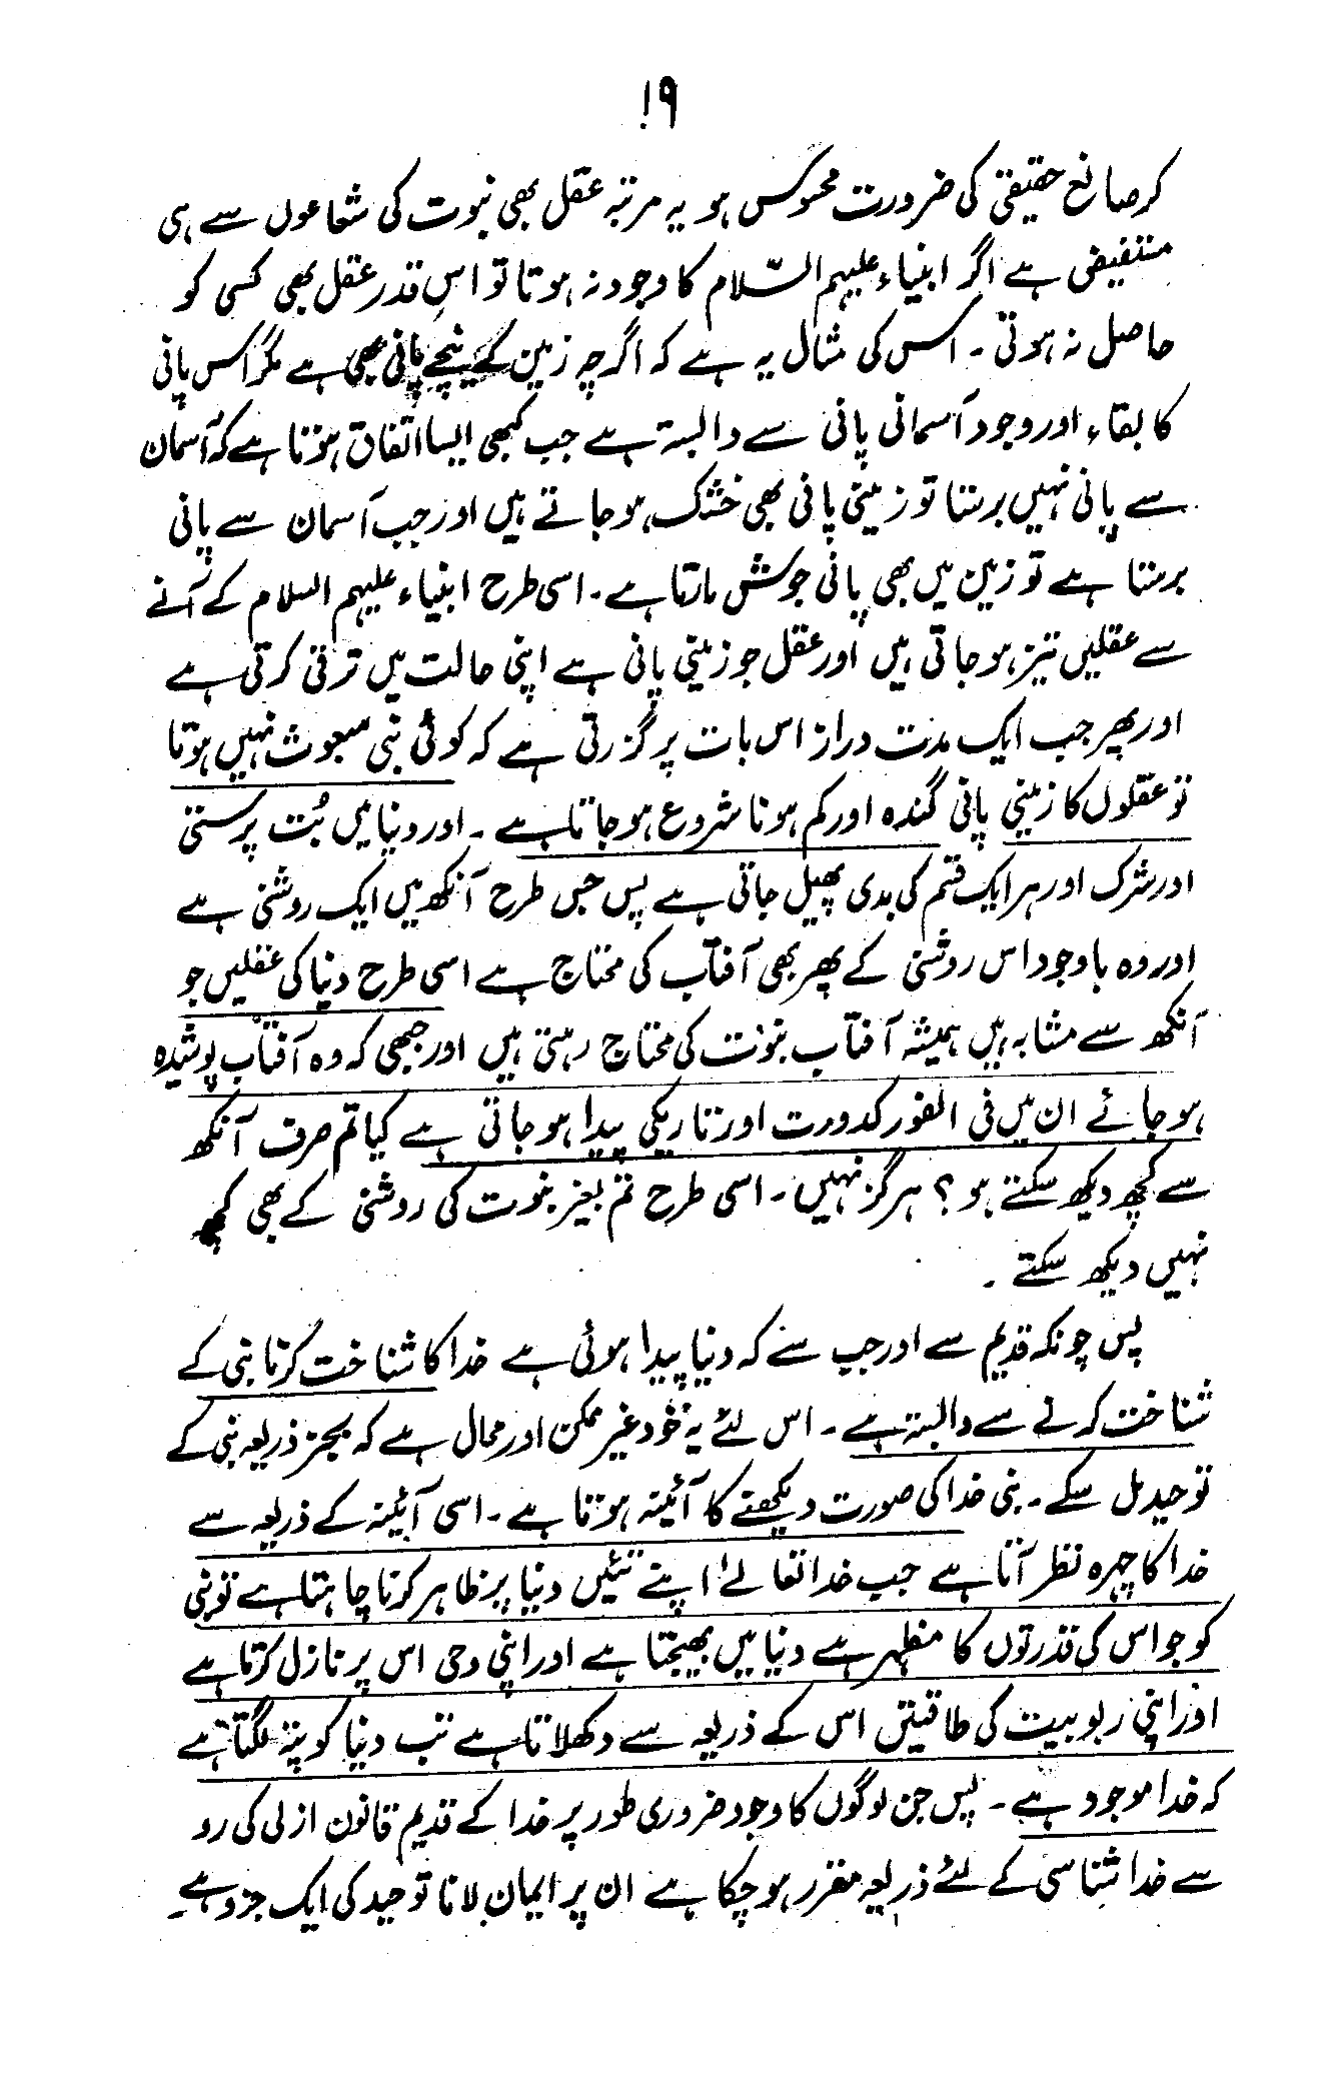 ۱۹
کر صانع حقیقی کی ضرورت محسوس ہو یہ مرتبہ عقل بھی نبوت کی شعاعوں سے ہی
مستفیض ہے اگر انبیاء علیہم السّلام کا وجود نہ ہوتا تو اس قدر عقل بھی کسی کو
حاصل نہ ہوتی ۔ اس کی مثال یہ ہے کہ اگرچہ زمین کے نیچے پانی بھی ہے مگر اس پانی
کا بقاء اور وجود آسمانی پانی سے وابستہ ہے جب کبھی ایسا اتفاق ہوتا ہے کہ آسمان
سے پانی نہیں برستا تو زمینی پانی بھی خشک ہو جاتے ہیں اور جب آسمان سے پانی
برستا ہے تو زمین میں بھی پانی جوش مارتا ہے ۔ اسی طرح انبیاء علیہم السلام کے آنے
سے عقلیں تیز ہو جاتی ہیں اور عقل جو زمینی پانی ہے اپنی حالت میں ترقی کرتی ہے
اور پھر جب ایک مدت دراز اس بات پر گزرتی ہے کہ کوئی نبی مبعوث نہیں ہوتا
تو عقلوں کا زمینی پانی گندہ اور کم ہونا شروع ہو جاتا ہے ۔ اور دنیا میں بُت پرستی
اور شرک اور ہر ایک قسم کی بدی پھیل جاتی ہے پس جس طرح آنکھ میں ایک روشنی ہے
اور وہ باوجود اس روشنی کے پھر بھی آفتاب کی محتاج ہے اسی طرح دنیا کی عقلیں جو
آنکھ سے مشابہ ہیں ہمیشہ آفتاب نبوت کی محتاج رہتی ہیں اور جبھی کہ وہ آفتاب پوشیدہ
ہو جائے ان میں فی الفور کدورت اور تاریکی پیدا ہو جاتی ہے کیا تم صرف آنکھ
سے کچھ دیکھ سکتے ہو ؟ ہرگز نہیں ۔ اسی طرح تم بغیر نبوت کی روشنی کے بھی کچھ
نہیں دیکھ سکتے ۔
پس چونکہ قدیم سے اور جب سے کہ دنیا پیدا ہوئی ہے خدا کا شناخت کرنا نبی کے
شناخت کرنے سے وابستہ ہے ۔ اس لئے یہ خود غیر ممکن اور محال ہے کہ بجز ذریعہ نبی کے
توحید مل سکے ۔ نبی خدا کی صورت دیکھنے کا آئینہ ہوتا ہے ۔ اسی آئینہ کے ذریعہ سے
خدا کا چہرہ نظر آتا ہے جب خدا تعالےٰ اپنے تئیں دنیا پر ظاہر کرنا چاہتا ہے تو نبی
کو جو اس کی قدرتوں کا مظہر ہے دنیا میں بھیجتا ہے اور اپنی وحی اس پر نازل کرتا ہے
اور اپنی ربوبیت کی طاقتیں اس کے ذریعہ سے دکھلاتا ہے تب دنیا کو پتہ لگتا ہے
کہ خدا موجود ہے ۔ پس جن لوگوں کا وجود ضروری طور پر خدا کے قدیم قانون ازلی کی رو
سے خدا شناسی کے لئے ذریعہ مقرر ہو چکا ہے ان پر ایمان لانا توحید کی ایک جزو ہے ۔